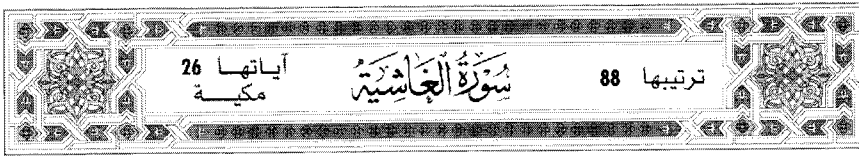 ترتيبها 88
سُورَةُ الْغَاشِيَةِ
آياتهـا 26
مكيـــة